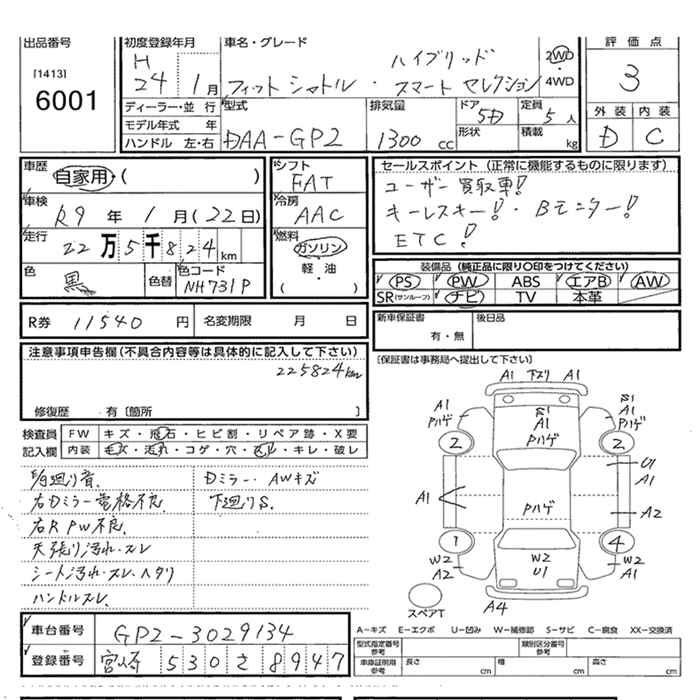 出品番号
[1413]
6001
初度登録年月
H
24 1月
車名・グレード
ハイブリッド
フィット シャトル ・ スマート セレクション
2WD
・
4WD
評価点
3
外装 内装
D C
ディーラー・並行
モデル年式 年
ハンドル 左・右
型式
DAA-GP2
排気量
1300 cc
ドア
5D
形状
定員
5人
積載
kg
車歴
自家用・( )
車検
R9 年 1月(22日)
走行
22万5千824km
色
黒
色替
色コード
NH731P
シフト
FAT
冷房
AAC
燃料
ガソリン
軽・油
( )
セールスポイント (正常に機能するものに限ります)
ユーザー買取車!
キーレスキー!・Bモニター!
ETC!
装備品 (純正品に限り○印をつけてください)
PS PW ABS エアB AW
SR(サンルーフ) ナビ TV 本革
R券 11540 円 名変期限 月 日
新車保証書
有・無
後日品
[保証書は事務局へ提出して下さい)
注意事項申告欄(不具合内容等は具体的に記入して下さい)
225824km
修復歴 有〔箇所 〕
検査員
記入欄
FW キズ・飛石・ヒビ割・リペア跡・X要
内装 キズ・汚れ・コゲ・穴・スレ・キレ・破レ
右Dミラー電格不良
右R PW不良
天張り汚れ・スレ
シート汚れ・スレ・ヘタリ
ハンドルスレ
Dミラー・AWキズ
下廻りS
A1 下ズリ A1
A1
Pハゲ
S1
A1
Pハゲ
S1
A1
Pハゲ
2 2
U1
A1
A1
Pハゲ
A2
1 4
W2
A2
W2
U1
W2
A1
スペアT
A4
車台番号
GP2-3029134
登録番号
宮崎 530 さ 8947
A-キズ E-エクボ U-凹み W-補修跡 S-サビ C-腐食 XX-交換済
型式指定番号
参考
類別区分番号
参考
車庫証明用
参考
長さ cm 幅 cm 高さ cm